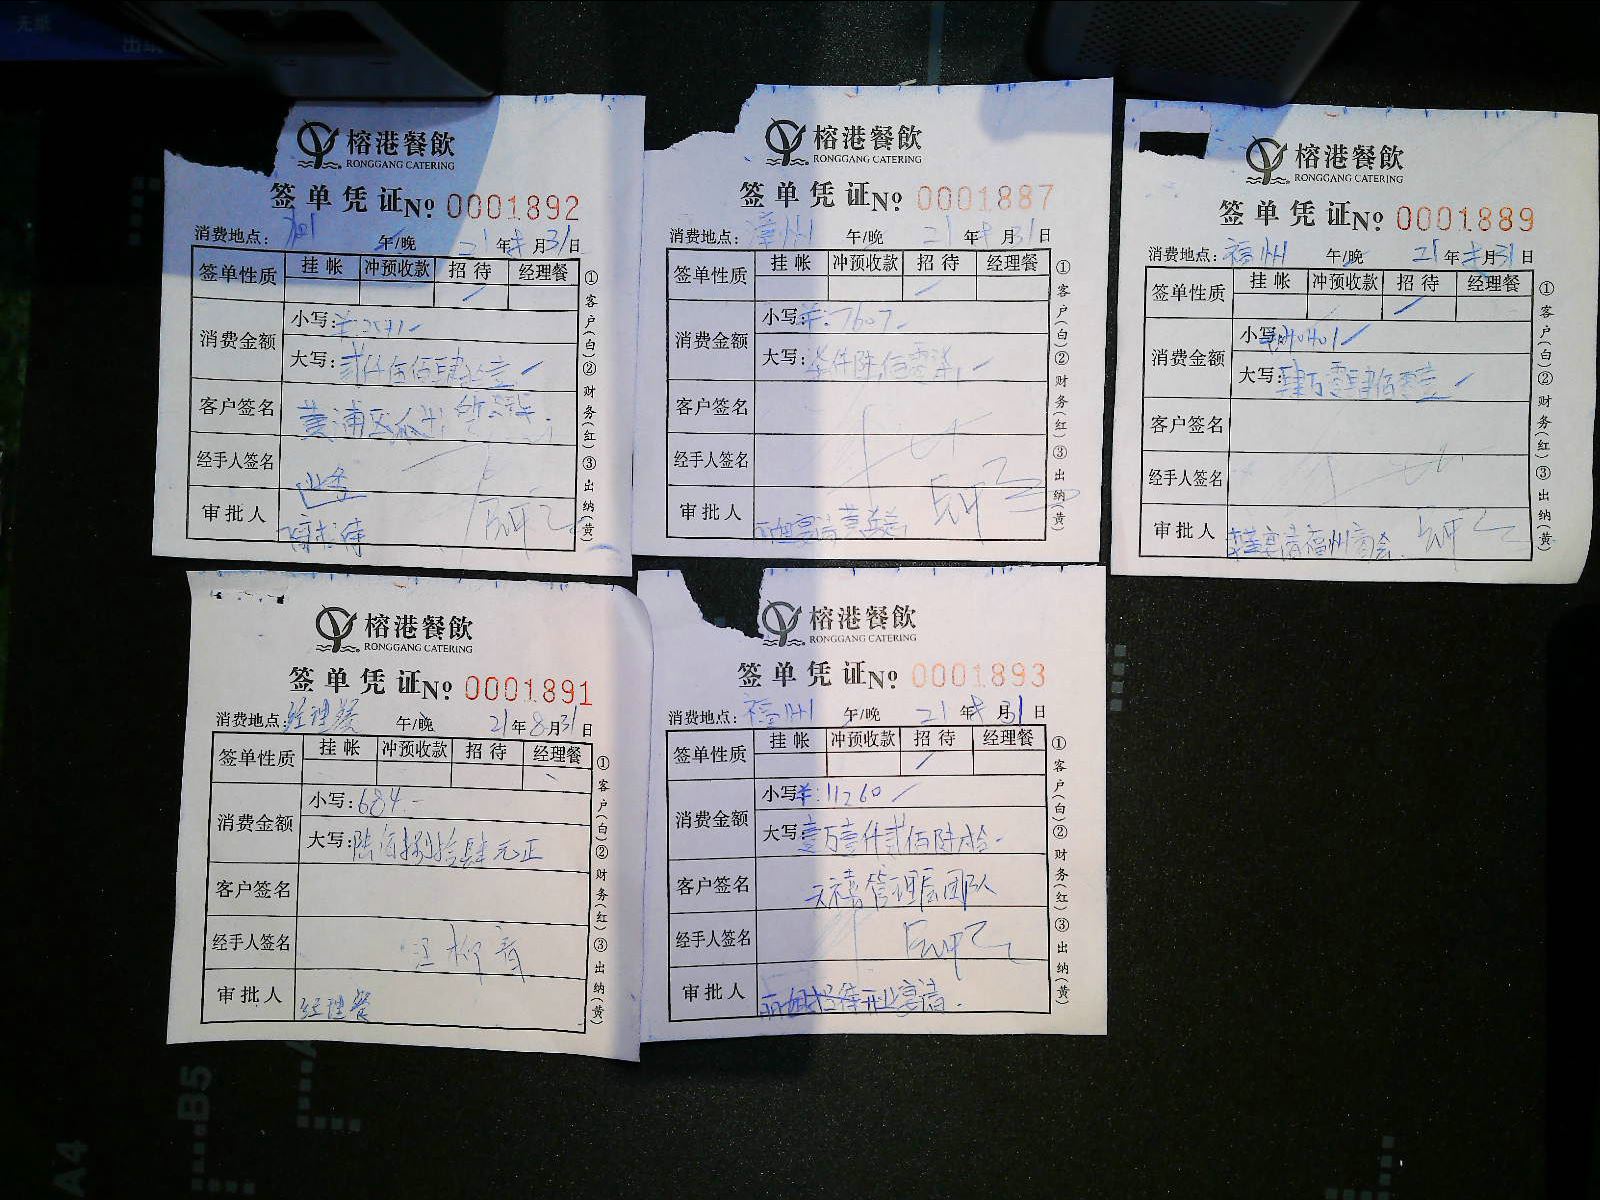 无纸
榕港餐飲
RONGGANG CATERING
签单凭证 No 0001892
消费地点: 午/晚 21年8月31日
签单性质 挂帐 冲预收款 招待 经理餐
✓
消费金额 小写: ¥:2541-
大写: 贰仟伍佰肆拾壹
客户签名 黄浦区
经手人签名
审批人
①客户(白)②财务(红)③出纳(黄)
榕港餐飲
RONGGANG CATERING
签单凭证 No 0001887
消费地点: 漳州 午/晚 21年8月31日
签单性质 挂帐 冲预收款 招待 经理餐
✓
消费金额 小写: ¥:7607-
大写: 柒仟陆佰零柒
客户签名
经手人签名
审批人
①客户(白)②财务(红)③出纳(黄)
榕港餐飲
RONGGANG CATERING
签单凭证 No 0001889
消费地点: 福州 午/晚 21年8月31日
签单性质 挂帐 冲预收款 招待 经理餐
✓
消费金额 小写: 40401
大写: 肆万零肆佰零壹
客户签名
经手人签名
审批人 宴请福州商会
①客户(白)②财务(红)③出纳(黄)
榕港餐飲
RONGGANG CATERING
签单凭证 No 0001891
消费地点: 经理餐 午/晚 21年8月31日
签单性质 挂帐 冲预收款 招待 经理餐
消费金额 小写: 684.-
大写: 陆佰捌拾肆元正
客户签名
经手人签名 汪柳青
审批人 经理餐
①客户(白)②财务(红)③出纳(黄)
榕港餐飲
RONGGANG CATERING
签单凭证 No 0001893
消费地点: 福州 午/晚 21年8月31日
签单性质 挂帐 冲预收款 招待 经理餐
✓
消费金额 小写: ¥:11260
大写: 壹万壹仟贰佰陆拾-
客户签名 天禧管理层团队
经手人签名
审批人 丽姐招待开业宴请.
①客户(白)②财务(红)③出纳(黄)
B5
A4